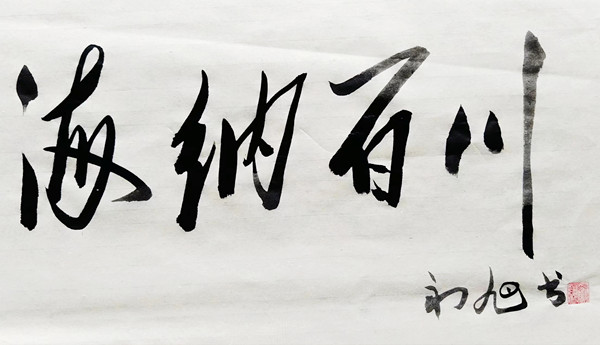 海纳百川
初旭书